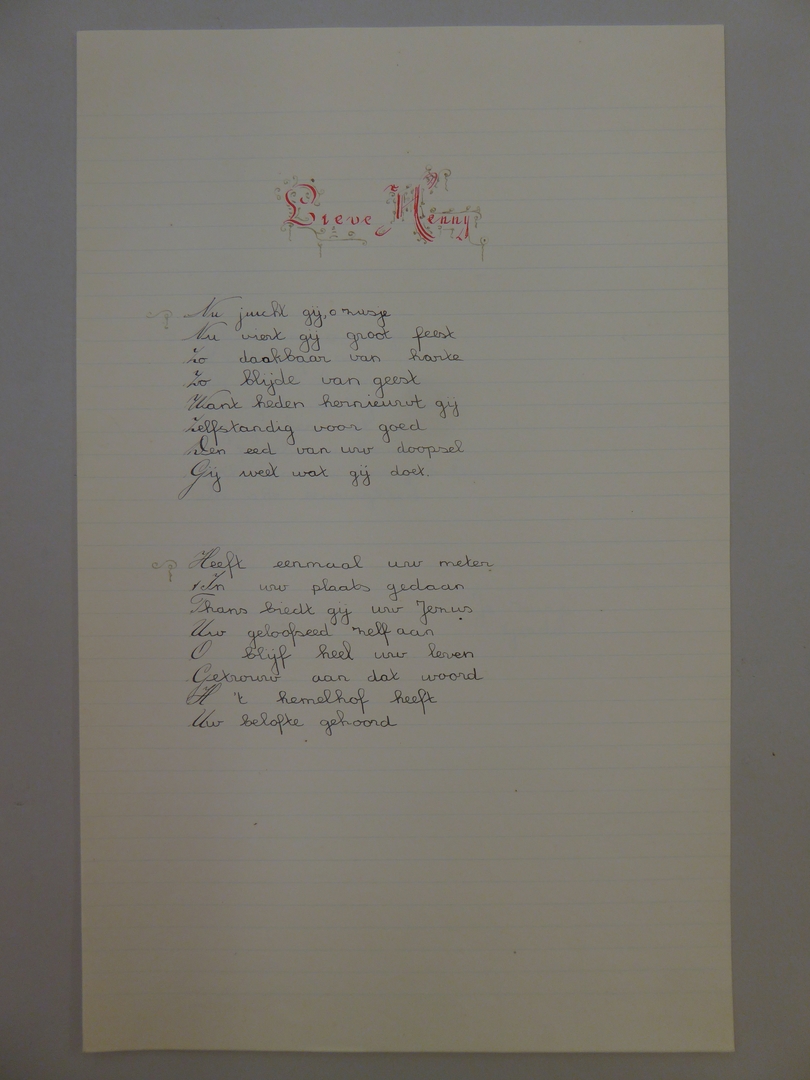 Lieve Henny
Nu juicht gij, o zusje
Nu viert gij groot feest
Zo dankbaar van harte
Zo blijde van geest
Want heden hernieuwt gij
Zelfstandig voor goed
Den eed van uw doopsel
Gij weet wat gij doet.
Heeft eenmaal uw meter
In uw plaats gedaan
Thans biedt gij uw Jezus
Uw geloofseed zelf aan
O blijf heel uw leven
Getrouw aan dat woord
't hemelhof heeft
Uw belofte gehoord